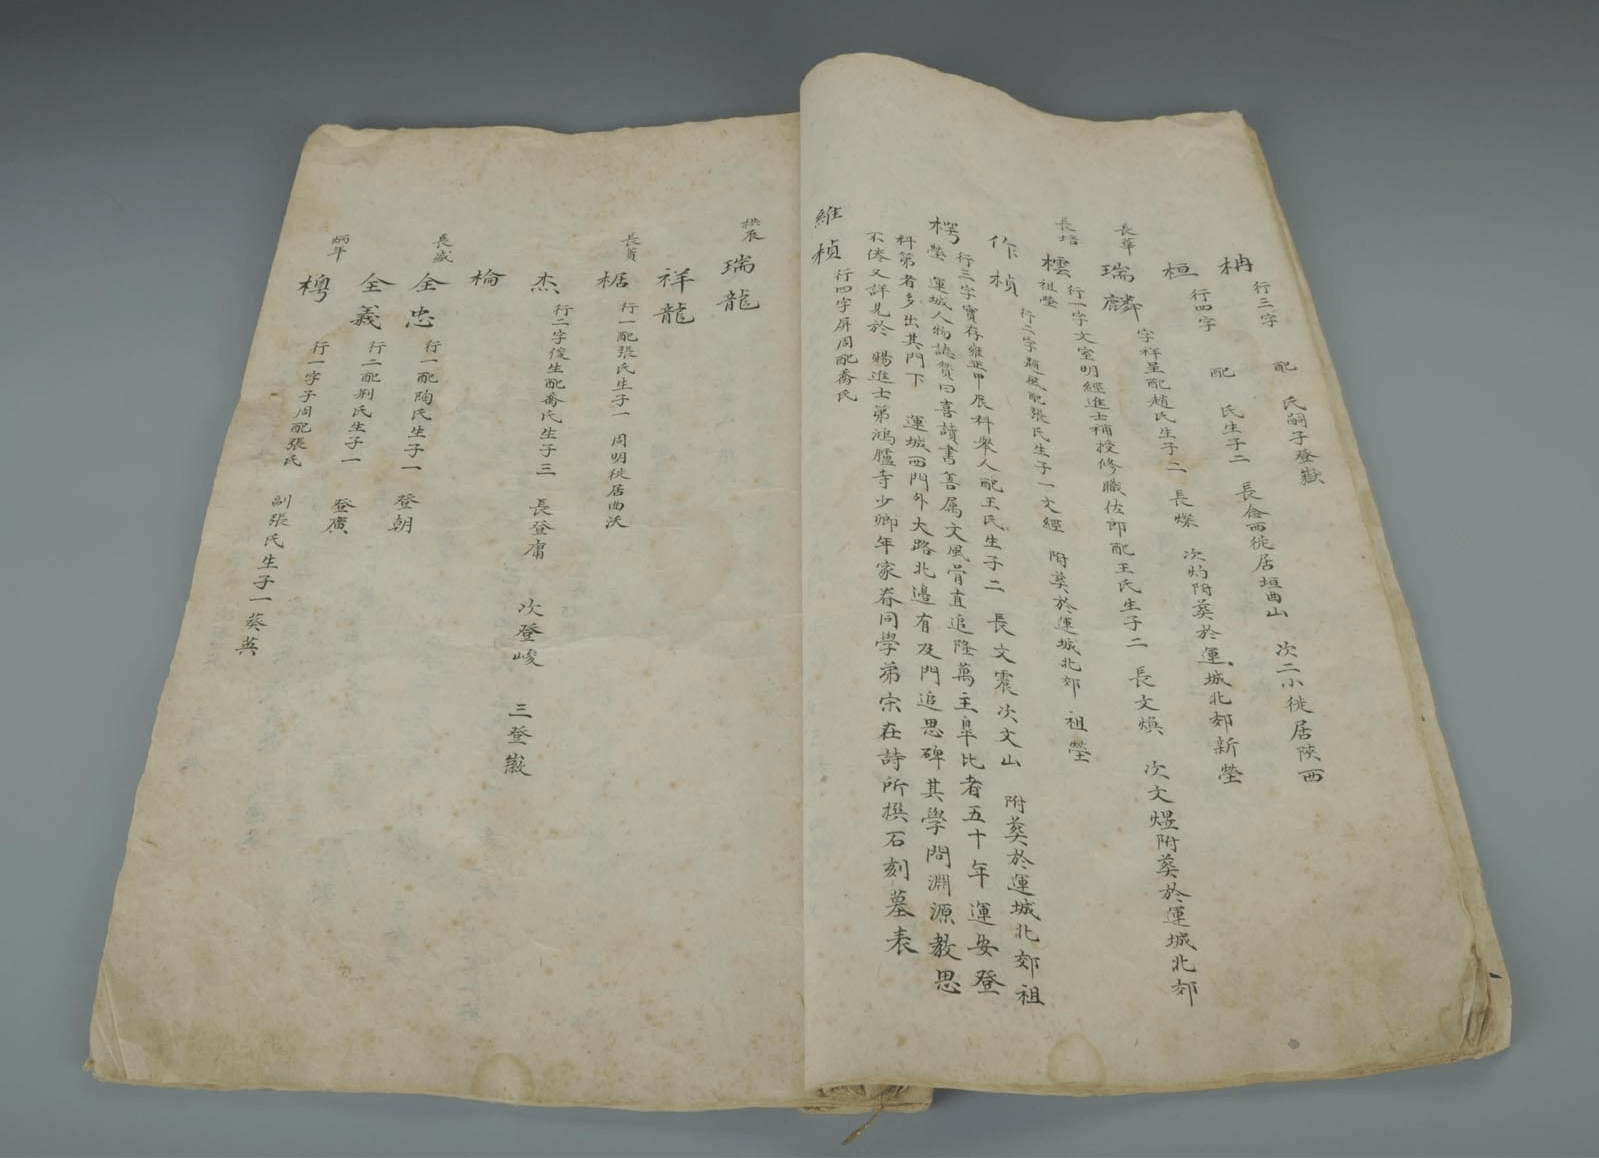 柟 行三字 配 氏嗣子登嶽
桓 行四字 配 氏生子二 長念西徙居垣曲山 次二小徙居陝西
長華
瑞麟 字祥呈配趙氏生子二 長燦 次灼附葬於運城北郊新塋
長培
櫄 行一字文室明經進士補授修職佐郎配王氏生子二 長文煥 次文焜附葬於運城北郊
祖塋
作楨 行二字趨風配張氏生子一文經 附葬於運城北郊 祖塋
楞 行三字實存雍正甲辰科舉人配王氏生子二 長文震次文山 附葬於運城北郊祖
塋 運城人物誌贊曰喜讀書善屬文風骨直追隆萬主皐比者五十年運安登
科第者多出其門下 運城西門外大路北邊有及門追思碑其學問淵源教思
不倦又詳見於 賜進士第鴻臚寺少卿年家眷同學弟宋在詩所撰石刻墓表
維楨 行四字屏周配喬氏
拱辰
瑞龍
祥龍
長賓
椐 行一配張氏生子一 周明徙居曲沃
杰 行二字俊生配喬氏生子三 長登庸 次登峻 三登嶶
棆
長盛
全忠 行一配陶氏生子一 登朝
全義 行二配荆氏生子一 登廣
炳年
梬 行一字子周配張氏 副張氏生子一葵英